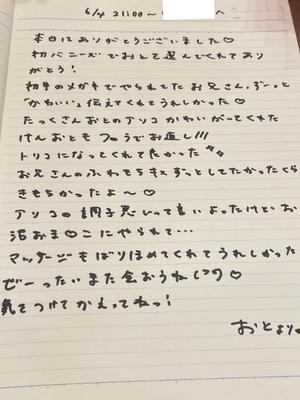 6/4 21:00〜 へ
本日はありがとうございました♡
初バニーズでおとを選んでくれてあり
がとう!
初手のメガネでやられてたお兄さん、ずーっと
「かわいい」伝えてくれてうれしかった♡
たっくさんおとのアソコかわいがってくれた
けんおともフロウでお返し///
トリコになってくれてたかった
お兄さんのふわもちもずっとしてたかったくら
きもちかったよ〜♡
アソコの調子悪いって言いよったけど、お
沼おま♡こにやられて…
マッサージもばりほめてくれてうれしかった
ぜーったいまた会おうね♡
気をつけてかえってねっ!
おとより